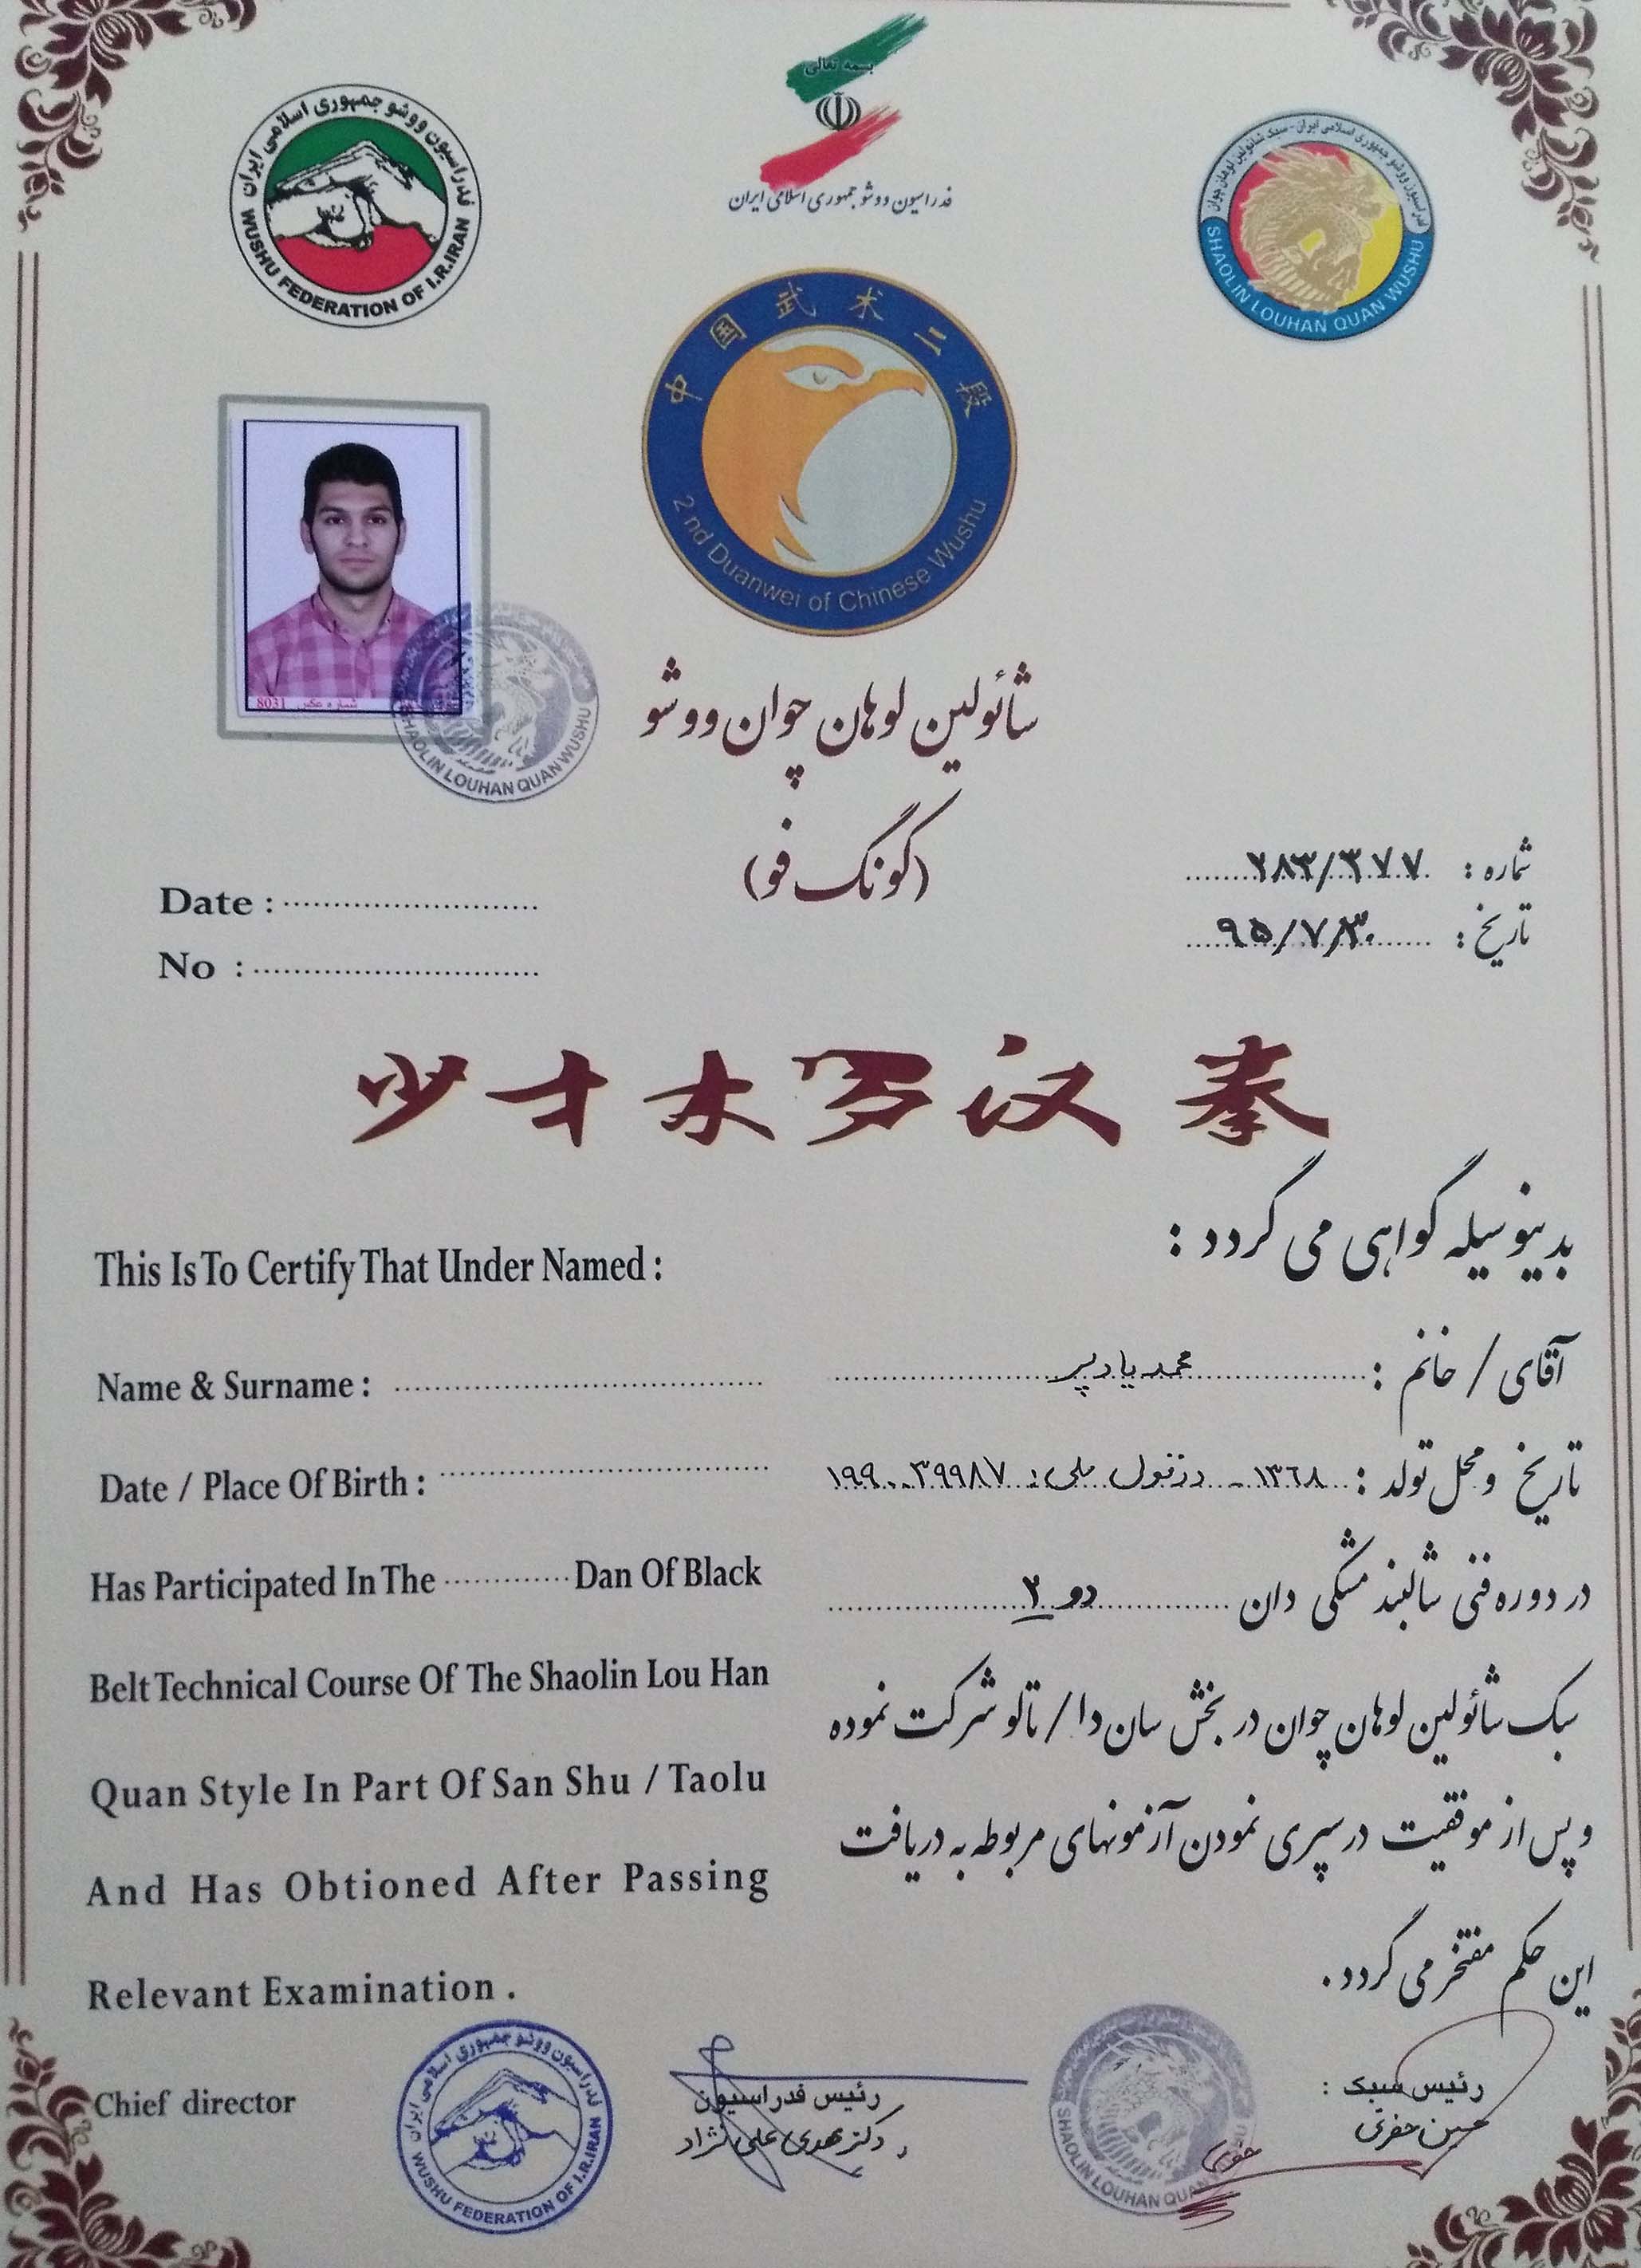 بسمه تعالی
فدراسیون ووشو جمهوری اسلامی ایران
فدراسیون ووشو جمهوری اسلامی ایران
WUSHU FEDERATION OF I.R.IRAN
فدراسیون ووشو جمهوری اسلامی ایران - سبک شائولین لوهان چوان
SHAOLIN LOUHAN QUAN WUSHU
中国武术二段
2 nd Duanwei of Chinese Wushu
شماره عکس 8031
SHAOLIN LOUHAN QUAN WUSHU
شائولین لوهان چوان ووشو
(کونگ فو)
شماره : ۲۸۳/۳۷۷
تاریخ : ۹۵/۷/۳۰
Date :
No :
少才木罗汉拳
بدینوسیله گواهی می گردد :
This Is To Certify That Under Named :
آقای / خانم : محمد یادپر
Name & Surname :
تاریخ و محل تولد : ۱۳۶۸ - دزفول ملی: ۱۹۹۰۰۳۹۹۸۷
Date / Place Of Birth :
در دوره فنی شالبند مشکی دان دو ۲
Has Participated In The Dan Of Black
سبک شائولین لوهان چوان در بخش سان دا / تالو شرکت نموده
Belt Technical Course Of The Shaolin Lou Han
و پس از موفقیت در سپری نمودن آزمونهای مربوطه به دریافت
Quan Style In Part Of San Shu / Taolu
این حکم مفتخر می گردد .
And Has Obtioned After Passing
Relevant Examination .
Chief director
فدراسیون ووشو جمهوری اسلامی ایران
WUSHU FEDERATION OF I.R.IRAN
رئیس فدراسیون
دکتر مهدی علی نژاد
SHAOLIN LOUHAN QUAN
رئیس سبک :